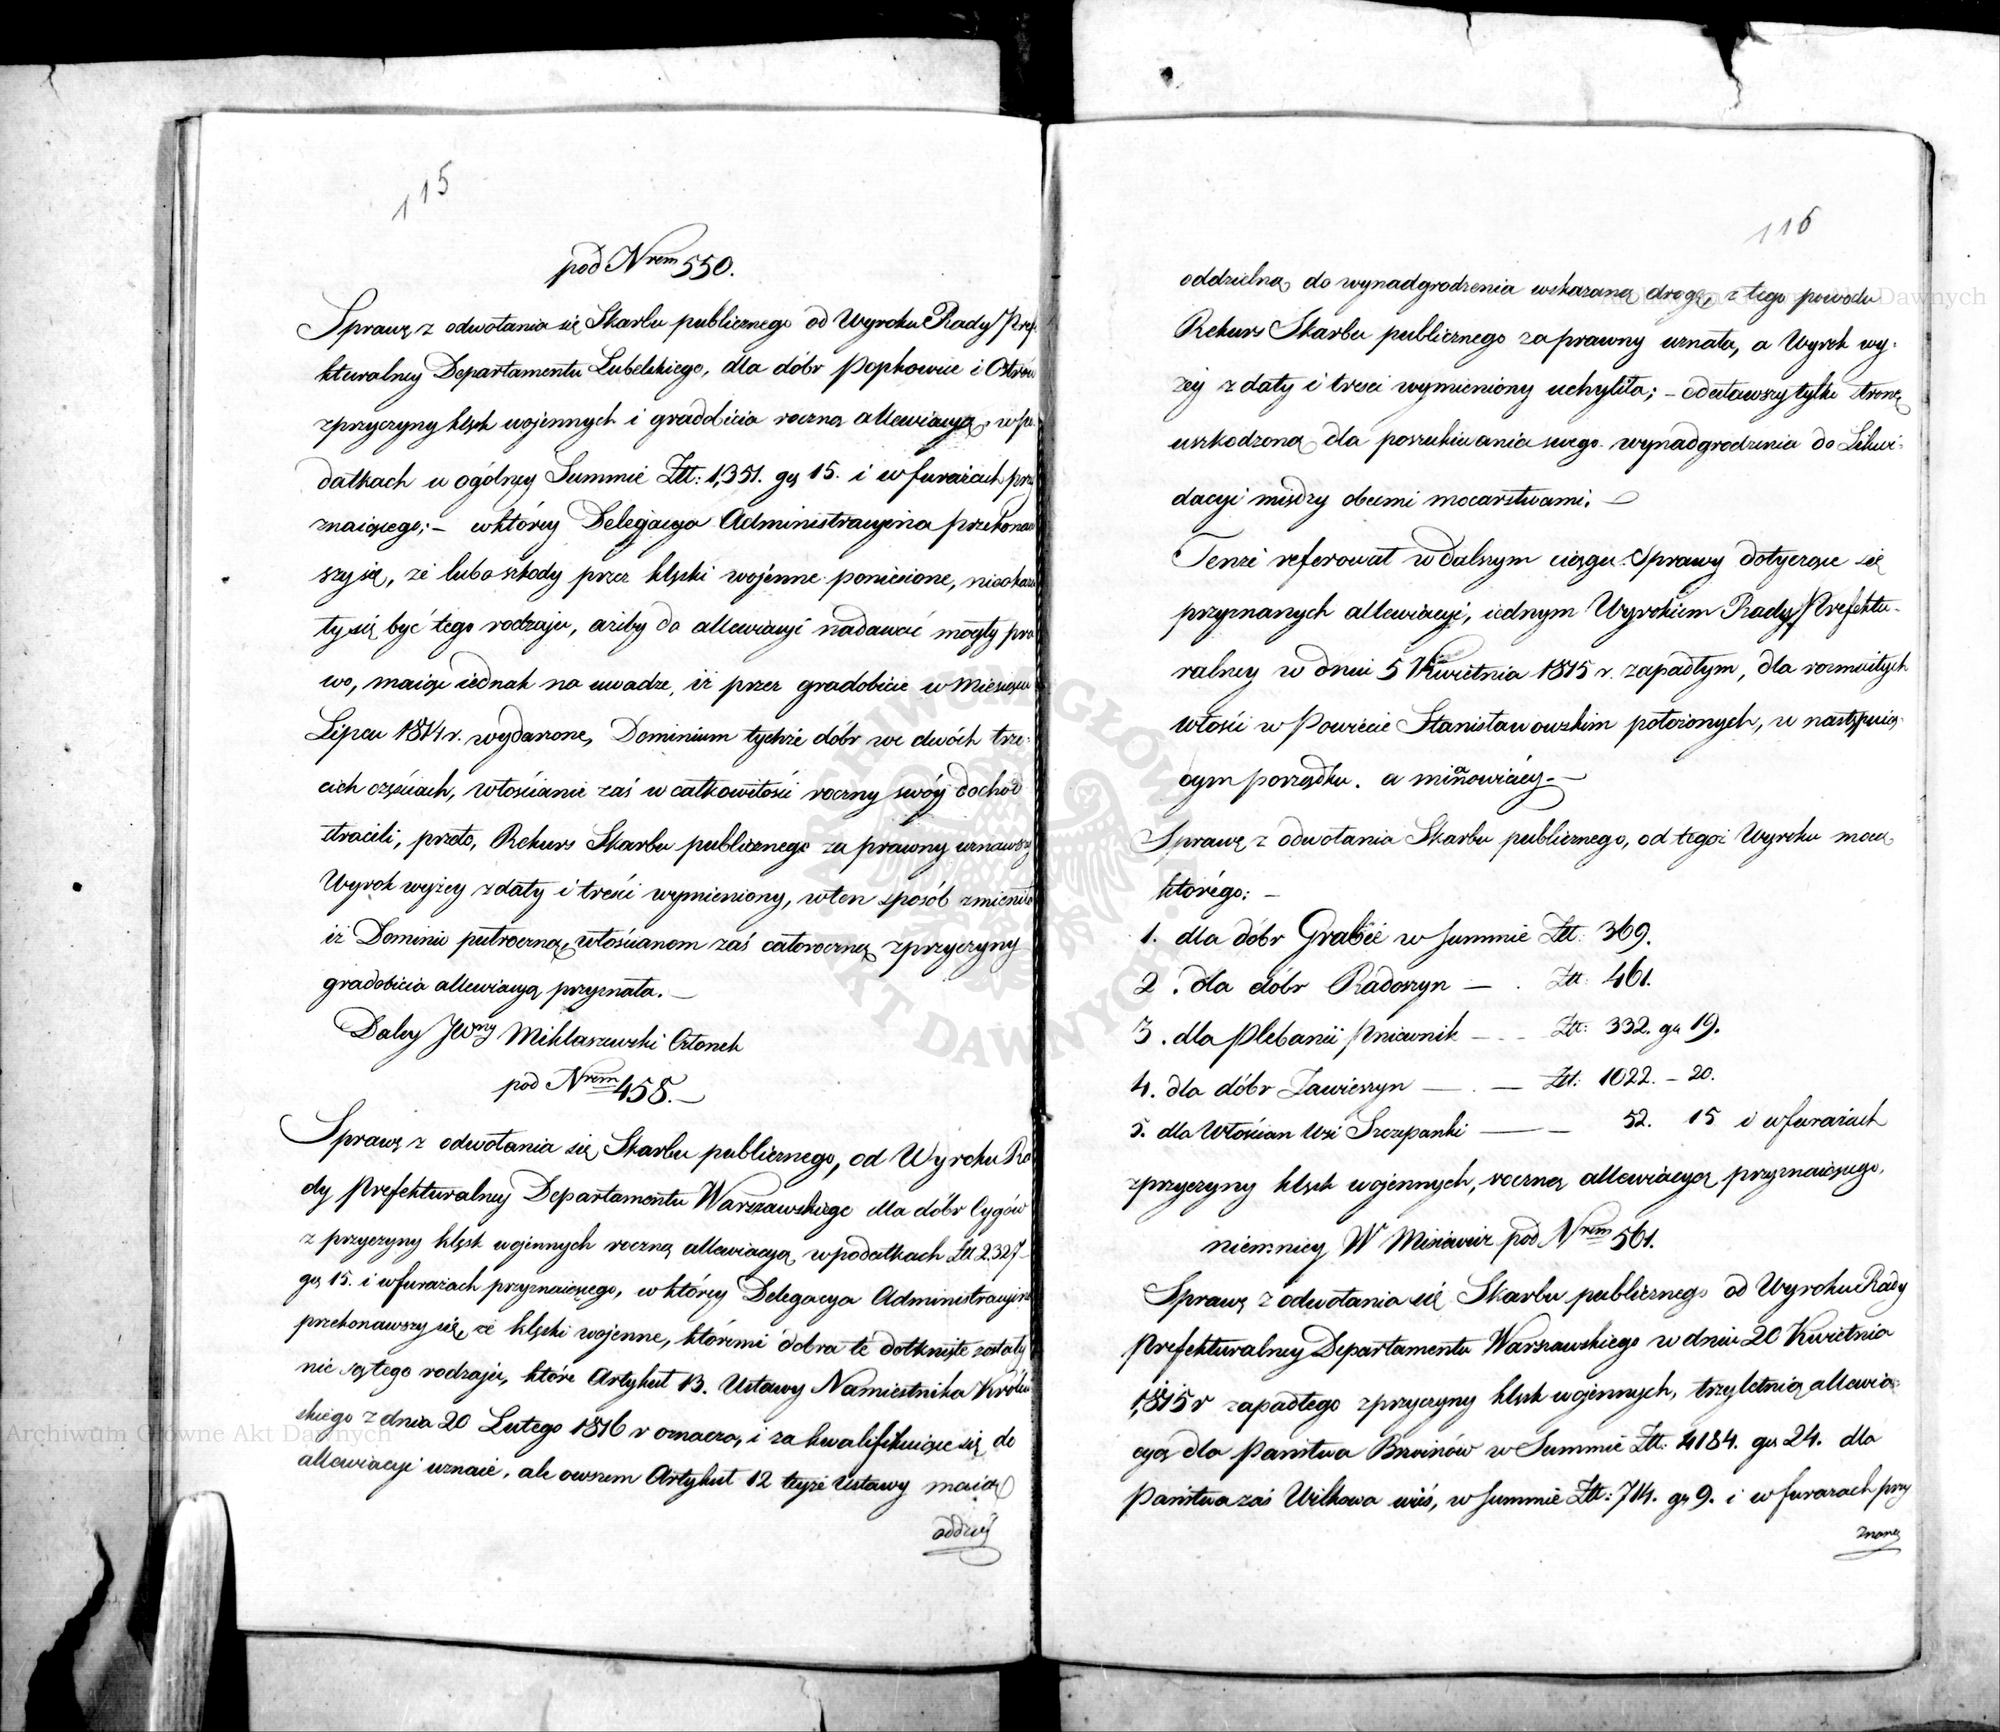 115
pod Nrem 550.
Sprawę z odwołania się Skarbu publicznego od Wyroku Rady Pref
kturalney Departamentu Lubelskiego, dla dóbr Popkowice i Ostrów
z przyczyny klęsk wojennych i gradobicia roczną allewiacyą, w po
datkach w ogólney Summie Złł: 1,351. gr 15. i w furażach prz
znaiącego; – w którey Delegacya Administracyina przekonaw
szy się, że lubo szkody przez klęski wojenne poniesione, nieokaza
ły się być tego rodzaju, ażeby do allewiacyi nadawać mogły pra
wo, maiąc iednak na uwadze, iż przez gradobicie w Miesiącu
Lipcu 1814 r. wydarzone, Dominium tychże dóbr we dwóch trze-
cich częściach, włościanie zaś w całkowitości roczny swóy dochód
stracili, przeto, Rekurs Skarbu publicznego za prawny uznawszy
Wyrok wyżey z daty i treści wymieniony, w ten sposób zmieniła
iż Dominio pułroczną, włościanom zaś całoroczną z przyczyny
gradobicia allewiacyą przyznała. –
Daley JWny Miklaszewski Członek
pod Nrem 458. –
Sprawę z odwołania się Skarbu publicznego, od Wyroku Ra
dy Prefekturalney Departamentu Warszawskiego dla dóbr Cygów
z przyczyny klęsk wojennych roczną allewiacyą w podatkach Złł 2327 –
gr 15. i w furażach przyznaiącego, w którey Delegacya Administracyina
przekonawszy się, że klęski wojenne, któremi dobra te dotknięte zostały
nie są tego rodzaju, które Artykuł 13. Ustawy Namiestnika Królew
skiego z dnia 20 Lutego 1816 r oznacza, i za kwalifikuiące się do
allewiacyi uznaie, ale owszem Artykuł 12 teyże Ustawy maią
oddziel
116
oddzielną do wynadgrodzenia wskazaną drogę, z tego powodu
Rekurs Skarbu publicznego za prawny uznała, a Wyrok wy-
żey z daty i treści wymieniony uchyliła; – odesławszy tylko stronę
uszkodzoną dla poszukiwania swego wynadgrodzenia do Likwi-
dacyi między obcemi mocarstwami. –
Tenże referował w dalszym ciągu Sprawy dotyczące się
przyznanych allewiacyi, iednym Wyrokiem Rady Prefektu-
ralney w dniu 5 Kwietnia 1815 r. zapadłym, dla rozmaitych
włości w Powiecie Stanisławowskim położonych, w następuią-
cym porządku. a mianowiciey. –
Sprawę z odwołania Skarbu publicznego, od tegoż Wyroku mocą
którégo: –
1. dla dóbr Grabie w summie Złł: 369.
2. dla dóbr Radoszyn – . Złł: 461.
3. dla Plebanii Pniewnik – . – Złł: 332. gr 19.
4. dla dóbr Zawieszyn – . – Złł: 1022. – 20.
5. dla Włościan Wsi Szczepanki – – 52. 15 i w furażach
z przyczyny klęsk wojennych, roczną allewiacyą przyznaiącego,
niemniey W Misiewicz pod Nrem 561.
Sprawę z odwołania się Skarbu publicznego od Wyroku Rady
Prefekturalney Departamentu Warszawskiego w dniu 20 Kwietnia
1815 r zapadłego z przyczyny klęsk wojennych, trzyletnią allewia-
cyą dla Państwa Brwinów w Summie Złł: 4184. gr 24. dla
Państwa zaś Wilkowa wieś, w summie Złł: 714. gr 9. i w furażach przy
znaną
Archiwum Główne Akt Dawnych